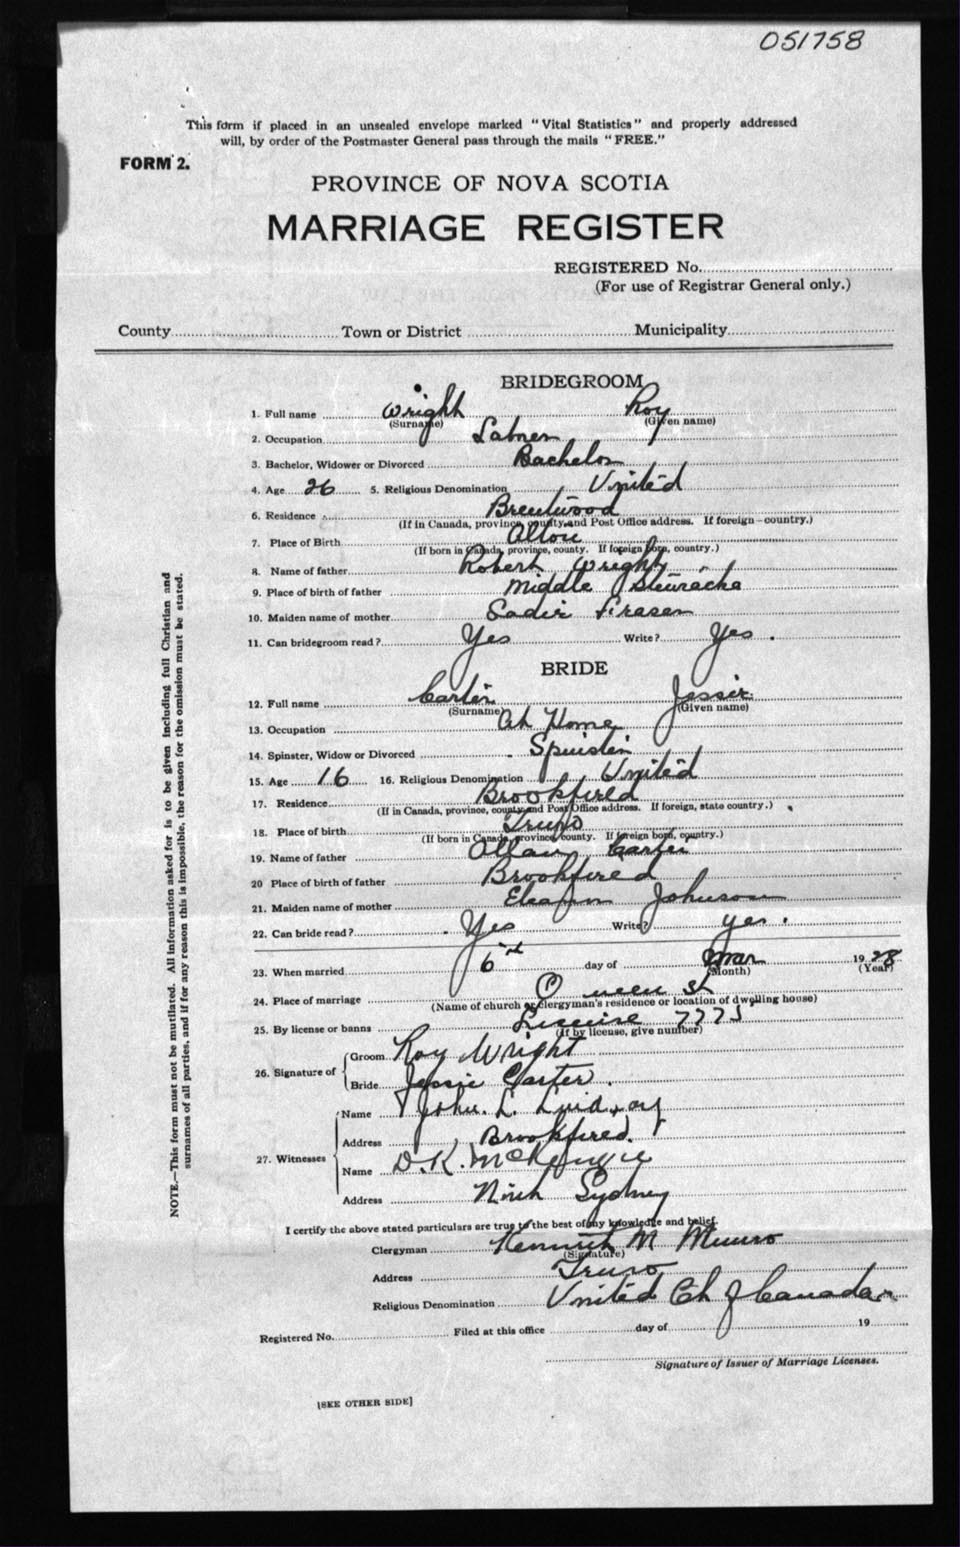 051758
This form if placed in an unsealed envelope marked "Vital Statistics" and properly addressed
will, by order of the Postmaster General pass through the mails "FREE."
FORM 2.
PROVINCE OF NOVA SCOTIA
MARRIAGE REGISTER
REGISTERED No.
(For use of Registrar General only.)
County Town or District Municipality
BRIDEGROOM
1. Full name Wright Roy
(Surname) (Given name)
2. Occupation Labrer
3. Bachelor, Widower or Divorced Bachelor
4. Age 26 5. Religious Denomination United
6. Residence Brentwood
(If in Canada, province, county and Post Office address. If foreign—country.)
7. Place of Birth Alton
(If born in Canada, province, county. If foreign born, country.)
8. Name of father Robert Wright
9. Place of birth of father Middle
10. Maiden name of mother Sadie Fraser
11. Can bridegroom read? Yes Write? Yes.
BRIDE
12. Full name Carter Jessie
(Surname) (Given name)
13. Occupation At Home
14. Spinster, Widow or Divorced Spinster
15. Age 16 16. Religious Denomination United
17. Residence Brookfield
(If in Canada, province, county and Post Office address. If foreign, state country.)
18. Place of birth Truro
(If born in Canada, province, county. If foreign born, country.)
19. Name of father Allan Carter
20 Place of birth of father Brookfield
21. Maiden name of mother Johnson
22. Can bride read? Yes Write? yes.
23. When married 6th day of Mar 1928
(Month) (Year)
24. Place of marriage Queen St
(Name of church or clergyman's residence or location of dwelling house)
25. By license or banns License 7775
(If by license, give number)
26. Signature of Groom Roy Wright
Bride Jessie Carter.
27. Witnesses Name John. L.
Address Brookfield.
Name D. K. McKenzie
Address North Sydney
I certify the above stated particulars are true to the best of my knowledge and belief.
Clergyman Kenneth M Munro
(Signature)
Address Truro
Religious Denomination United Ch of Canada
Registered No. Filed at this office day of 19
Signature of Issuer of Marriage Licenses.
[SEE OTHER SIDE]
NOTE.—This form must not be mutilated. All information asked for is to be given including full Christian and
surnames of all parties, and if for any reason this is impossible, the reason for the omission must be stated.